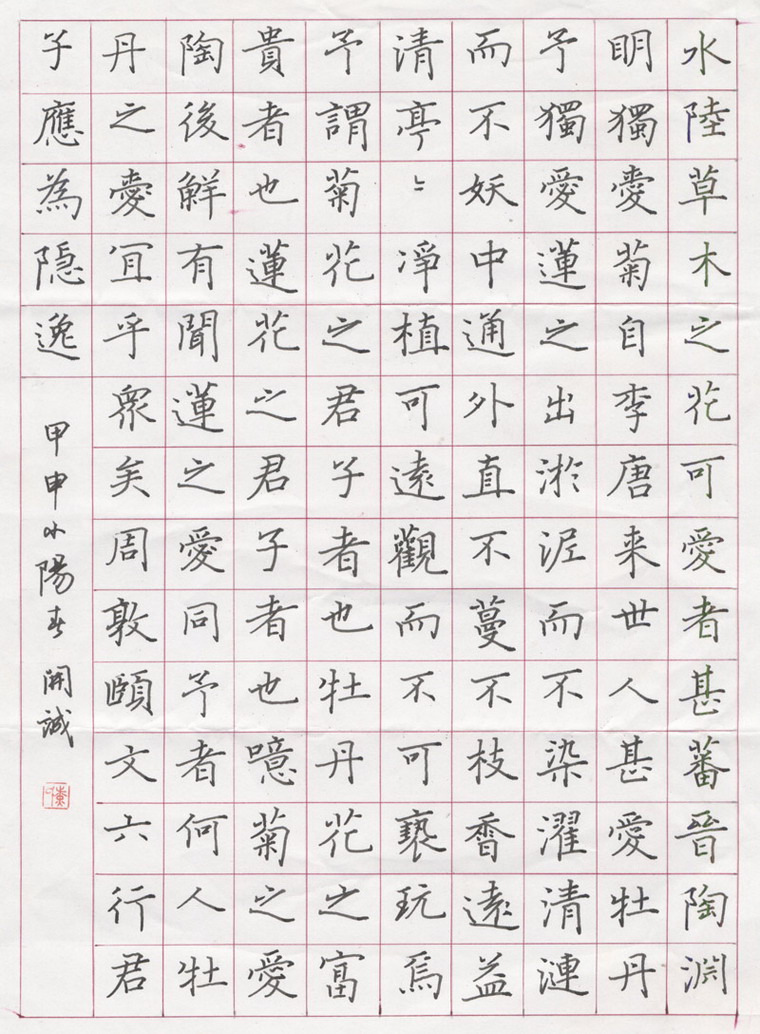 水陸草木之花可愛者甚蕃晉陶淵
明獨愛菊自李唐来世人甚愛牡丹
予獨愛蓮之出淤泥而不染濯清漣
而不妖中通外直不蔓不枝香遠益
清亭〻凈植可遠觀而不可褻玩焉
予謂菊花之君子者也牡丹花之富
貴者也蓮花之君子者也噫菊之愛
陶後鮮有聞蓮之愛同予者何人牡
丹之愛宜乎衆矣周敦頤文六行君
子應為隱逸
甲申小陽春 開誠